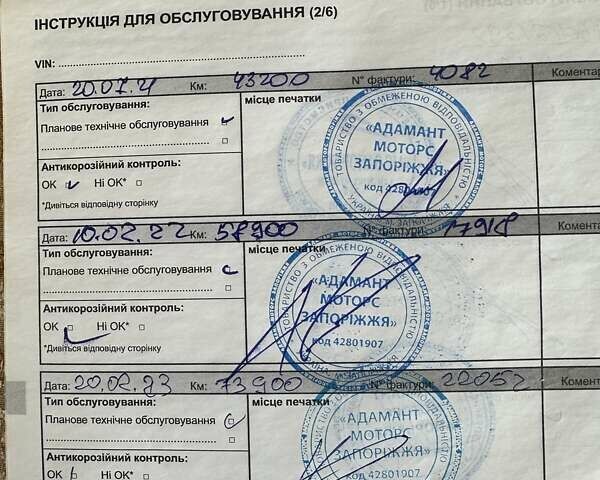 ІНСТРУКЦІЯ ДЛЯ ОБСЛУГОВУВАННЯ (2/6)
VIN:
Дата: 20.07.21 Км: 43200 N° фактури: 4082 Коментар
Тип обслуговування: місце печатки
Планове технічне обслуговування
Антикорозійний контроль:
ОК Ні ОК*
*Дивіться відповідну сторінку
ТОВАРИСТВО З ОБМЕЖЕНОЮ ВІДПОВІДАЛЬНІСТЮ
«АДАМАНТ
МОТОРС
ЗАПОРІЖЖЯ»
код 42801907
Дата: 10.02.22 Км: 58900 N° фактури: 7918 Комента
Тип обслуговування: місце печатки
Планове технічне обслуговування
Антикорозійний контроль:
ОК Ні ОК*
*Дивіться відповідну сторінку
ТОВАРИСТВО З ОБМЕЖЕНОЮ ВІДПОВІДАЛЬНІСТЮ
«АДАМАНТ
МОТОРС
ЗАПОРІЖЖЯ»
код 42801907
Дата: 20.02.23 Км: 73900 N° фактури: 22052 Комента
Тип обслуговування: місце печатки
Планове технічне обслуговування
Антикорозійний контроль:
ОК Ні ОК*
«АДАМАНТ
МОТОРС
ЗАПОРІЖЖЯ»
код 42801907